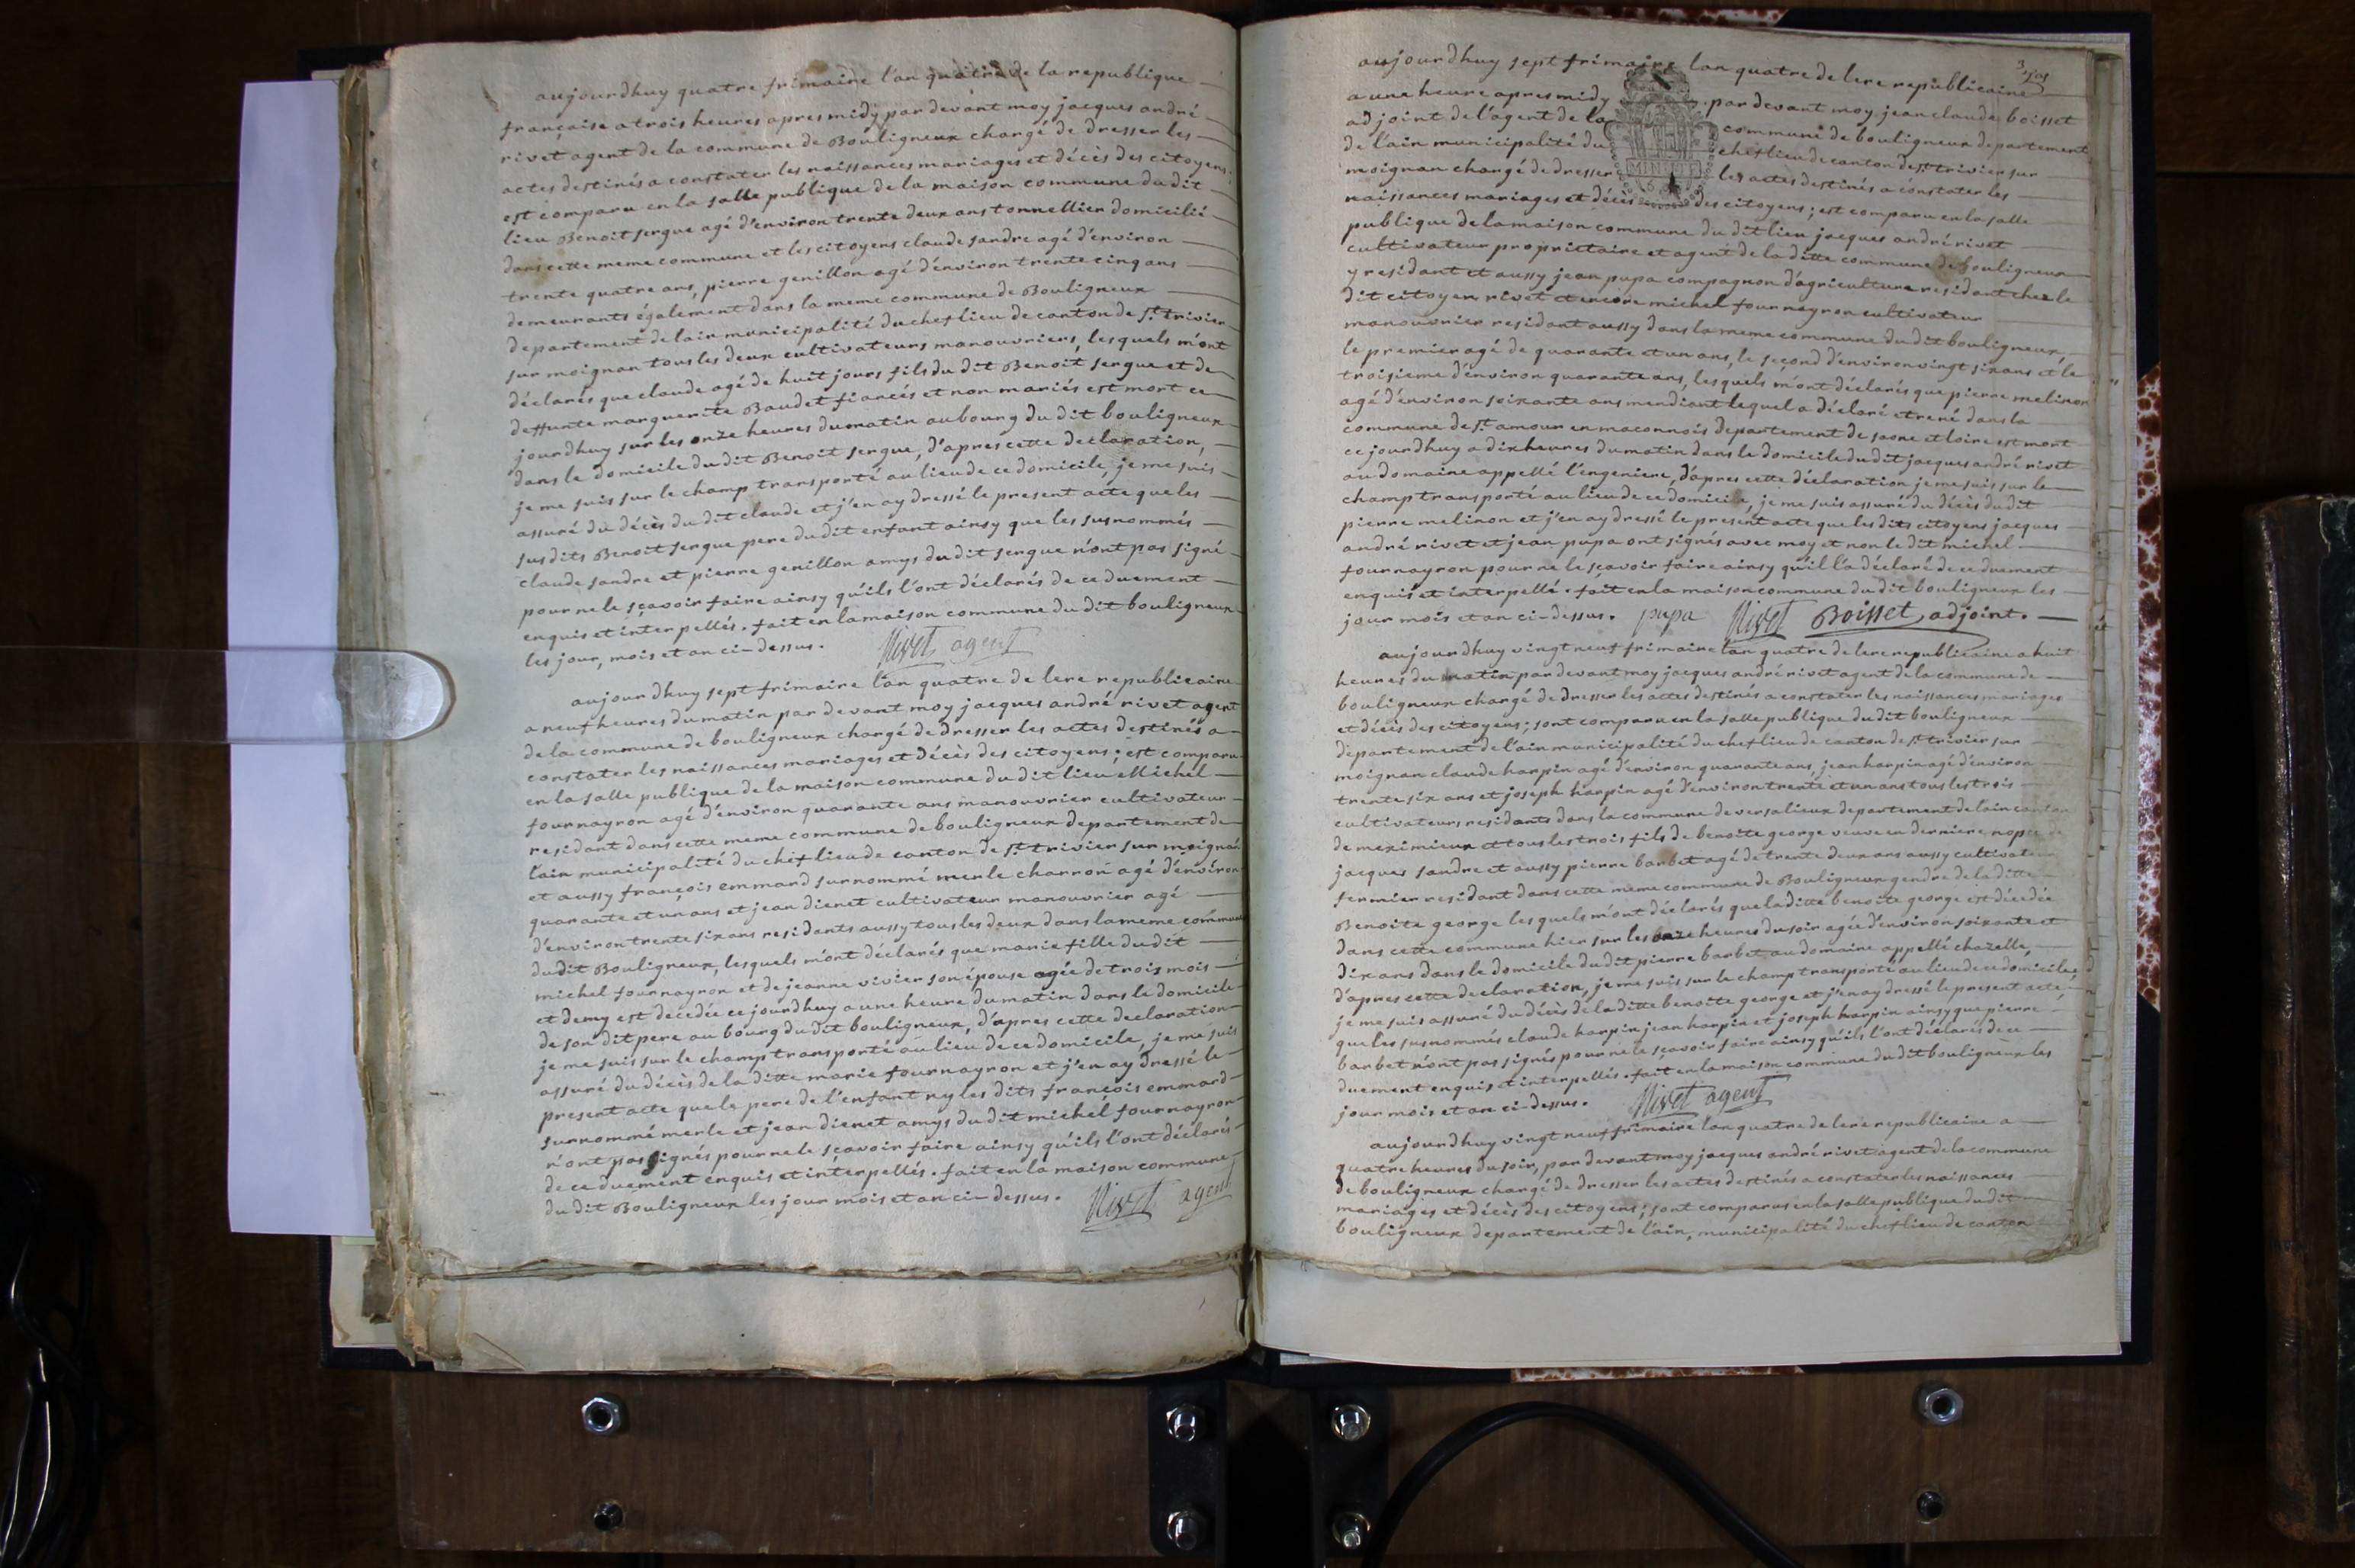 aujourdhuy quatre frimaire l'an quatre de la republique
française a trois heures apres midy par devant moy jacques andré
rivet agent de la commune de Bouligneux chargé de dresser les
actes destinés a constater les naissances mariages et décès des citoyens.
est comparu en la salle publique de la maison commune du dit
lieu Benoit sergue agé d'environ trente deux ans tonnellier domicilié
dans cette meme commune et les citoyens claude sandre agé d'environ
trente quatre ans, pierre genillon agé d'environ trente cinq ans
demeurants également dans la meme commune de Bouligneux
departement de lain municipalité du chef lieu de canton de st. trivier
sur moignan tous les deux cultivateurs manouvriers, lesquels m'ont
déclarés que claude agé de huit jours fils du dit Benoit sergue et de
deffunte marguerite Baudet fiancés et non mariés est mort ce
jourdhuy sur les onze heures du matin au bourg du dit bouligneux
dans le domicile du dit Benoit sergue, d'apres cette declaration,
je me suis sur le champ transporté au lieu de ce domicile, je me suis
assuré du décès du dit claude et j'en ay dressé le present acte que les
susdits Benoit sergue pere du dit enfant ainsy que les susnommés
claude sandre et pierre genillon amys du dit sergue n'ont pas signé
pour ne le sçavoir faire ainsy qu'ils l'ont déclarés de ce duement
enquis et interpellés. fait en la maison commune du dit bouligneux
les jour, mois et an ci-dessus. Rivet agent
aujourdhuy sept frimaire l'an quatre de lere republicaine
a neuf heures du matin par devant moy jacques andré rivet agent
de la commune de bouligneux chargé de dresser les actes destinés a
constater les naissances mariages et décès des citoyens; est comparu
en la salle publique de la maison commune du dit lieu Michel
fournayron agé d'environ quarante ans manouvrier cultivateur
residant dans cette meme commune de bouligneux departement de
lain municipalité du chef lieu de canton de st. trivier sur moignan
et aussy françois emmard surnommé merle charron agé d'environ
quarante et un ans et jean dienet cultivateur manouvrier agé
d'environ trente six ans residants aussy tous les deux dans la meme commune
du dit Bouligneux, lesquels m'ont déclarés que marie fille du dit
michel fournayron et de jeanne vivier son épouse agée de trois mois
et demy est décedée ce jourdhuy a une heure du matin dans le domicile
de son dit pere au bourg du dit bouligneux, d'apres cette declaration
je me suis sur le champ transporté au lieu de ce domicile, je me suis
assuré du décès de la ditte marie fournayron et j'en ay dressé le
present acte que le pere de l'enfant ny les dits françois emmard
surnommé merle et jean dienet amys du dit michel fournayron
n'ont pas signés pour ne le sçavoir faire ainsy qu'ils l'ont déclarés
de ce duement enquis et interpellés. fait en la maison commune
du dit Bouligneux les jour mois et an ci-dessus. Rivet agent
aujourdhuy sept frimaire lan quatre de lere republicaine
a une heure apres midy par devant moy jean claude boisset
adjoint de l'agent de la commune de bouligneux departement
de l'ain municipalité du chef lieu de canton de st. trivier sur
moignan chargé de dresser les actes destinés a constater les
naissances mariages et décès des citoyens; est comparu en la salle
publique de la maison commune du dit lieu jacques andré rivet
cultivateur proprietaire et agent de la ditte commune de Bouligneux
y residant et aussy jean pupa compagnon d'agriculture residant chez le
dit citoyen rivet et encore michel fournayron cultivateur
manouvrier residant aussy dans la meme commune du dit bouligneux
le premier agé de quarante et un ans, le second d'environ vingt six ans et le
troisieme d'environ quarante ans, lesquels m'ont déclarés que pierre melinon
agé d'environ soixante ans mendiant lequel a déclaré etre né dans la
commune de st. amour en maconnois departement de saone et loire est mort
ce jourdhuy a dix heures du matin dans le domicile du dit jacques andré rivet
au domaine appellé l'engeniere, d'apres cette déclaration je me suis sur le
champ transporté au lieu de ce domicile, je me suis assuré du décès du dit
pierre melinon et j'en ay dressé le present acte que les dits citoyens jacques
andré rivet et jean pupa ont signés avec moy et non le dit michel
fournayron pour ne le sçavoir faire ainsy qu'il l'a déclaré de ce duement
enquis et interpellé. fait en la maison commune du dit bouligneux les
jour mois et an ci-dessus. pupa Rivet Boisset adjoint.
aujourdhuy vingt neuf frimaire lan quatre de lere republicaine a huit
heures du matin par devant moy jacques andré rivet agent de la commune de
bouligneux chargé de dresser les actes destinés a constater les naissances mariages
et décès des citoyens; sont comparu en la salle publique du dit bouligneux
departement de l'ain municipalité du chef lieu de canton de st. trivier sur
moignan claude harpin agé d'environ quarante ans, jean harpin agé d'environ
trente six ans et joseph harpin agé d'environ trente et un ans tous les trois
cultivateurs residants dans la commune de versalieux departement de lain canton
de meximieux et tous les trois fils de benoite george veuve en derniere nopce de
jacques sandre et aussy pierre barbet agé de trente deux ans aussy cultivateur
fermier residant dans cette meme commune de Bouligneux gendre de la ditte
Benoite george lesquels m'ont déclarés que la ditte benoite george est décedée
dans cette commune hier sur les onze heures du soir agée d'environ soixante et
dix ans dans le domicile du dit pierre barbet, au domaine appellé chazelle,
d'apres cette declaration, je me suis sur le champ transporté au lieu de ce domicile,
je me suis assuré du décès de la ditte benoite george et j'en ay dressé le present acte,
que les susnommés claude harpin jean harpin et joseph harpin ainsy que pierre
barbet n'ont pas signés pour ne le sçavoir faire ainsy qu'ils l'ont déclarés de ce
duement enquis et interpellés. fait en la maison commune du dit bouligneux les
jour mois et an ci-dessus. Rivet agent
aujourdhuy vingt neuf frimaire lan quatre de lere republicaine a
quatre heures du soir, par devant moy jacques andré rivet agent de la commune
de bouligneux chargé de dresser les actes destinés a constater les naissances
mariages et décès des citoyens; sont comparus en la salle publique du dit
bouligneux departement de l'ain, municipalité du chef lieu de canton